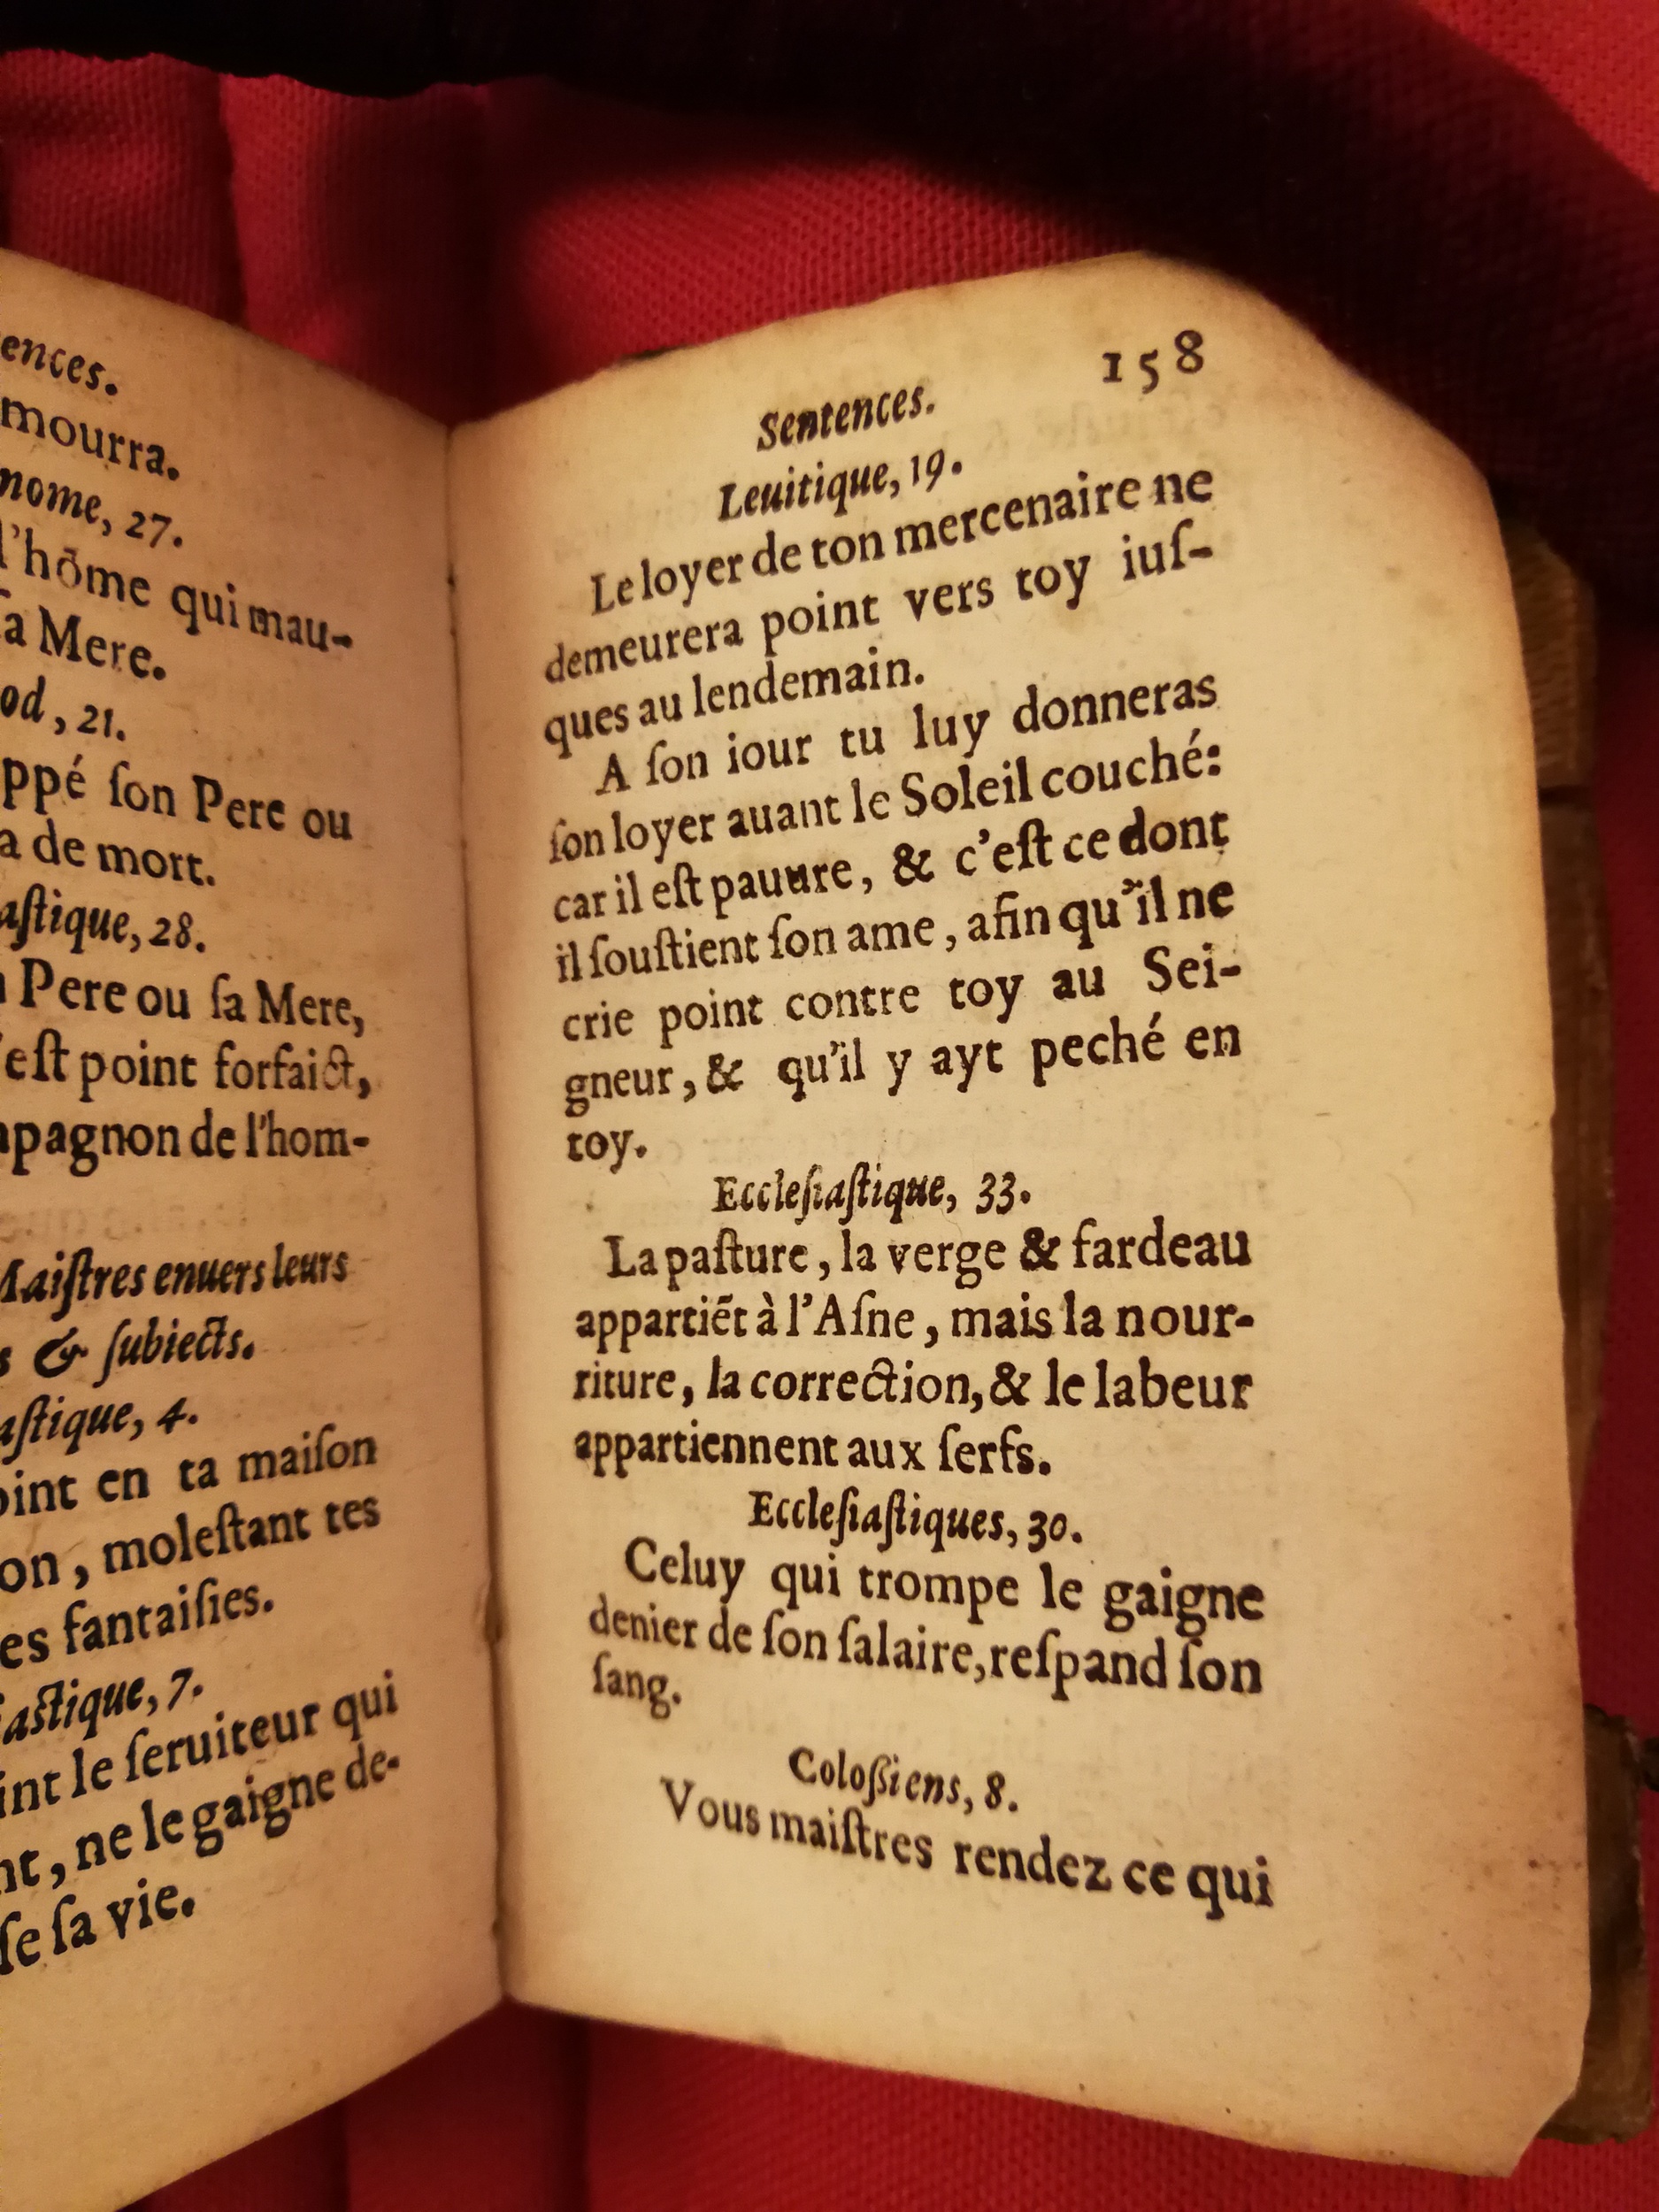 ences.
mourra.
nome, 27.
l'hōme qui mau-
ſa Mere.
od, 21.
ppé ſon Pere ou
a de mort.
aſtique, 28.
n Pere ou ſa Mere,
'eſt point forfaict,
mpagnon de l'hom-
Maiſtres enuers leurs
s & ſubiects.
aſtique, 4.
oint en ta maiſon
on, moleſtant tes
es fantaiſies.
ſiaſtique, 7.
int le ſeruiteur qui
nt, ne le gaigne de-
ſe ſa vie.
158
Sentences.
Leuitique, 19.
Le loyer de ton mercenaire ne
demeurera point vers toy iuſ-
ques au lendemain.
A ſon iour tu luy donneras
ſon loyer auant le Soleil couché:
car il eſt pauure, & c'eſt ce dont
il ſouſtient ſon ame, afin qu'il ne
crie point contre toy au Sei-
gneur, & qu'il y ayt peché en
toy.
Eccleſiaſtique, 33.
La paſture, la verge & fardeau
appartiēt à l'Aſne, mais la nour-
riture, la correction, & le labeur
appartiennent aux ſerfs.
Eccleſiaſtiques, 30.
Celuy qui trompe le gaigne
denier de ſon ſalaire, reſpand ſon
ſang.
Coloßiens, 8.
Vous maiſtres rendez ce qui